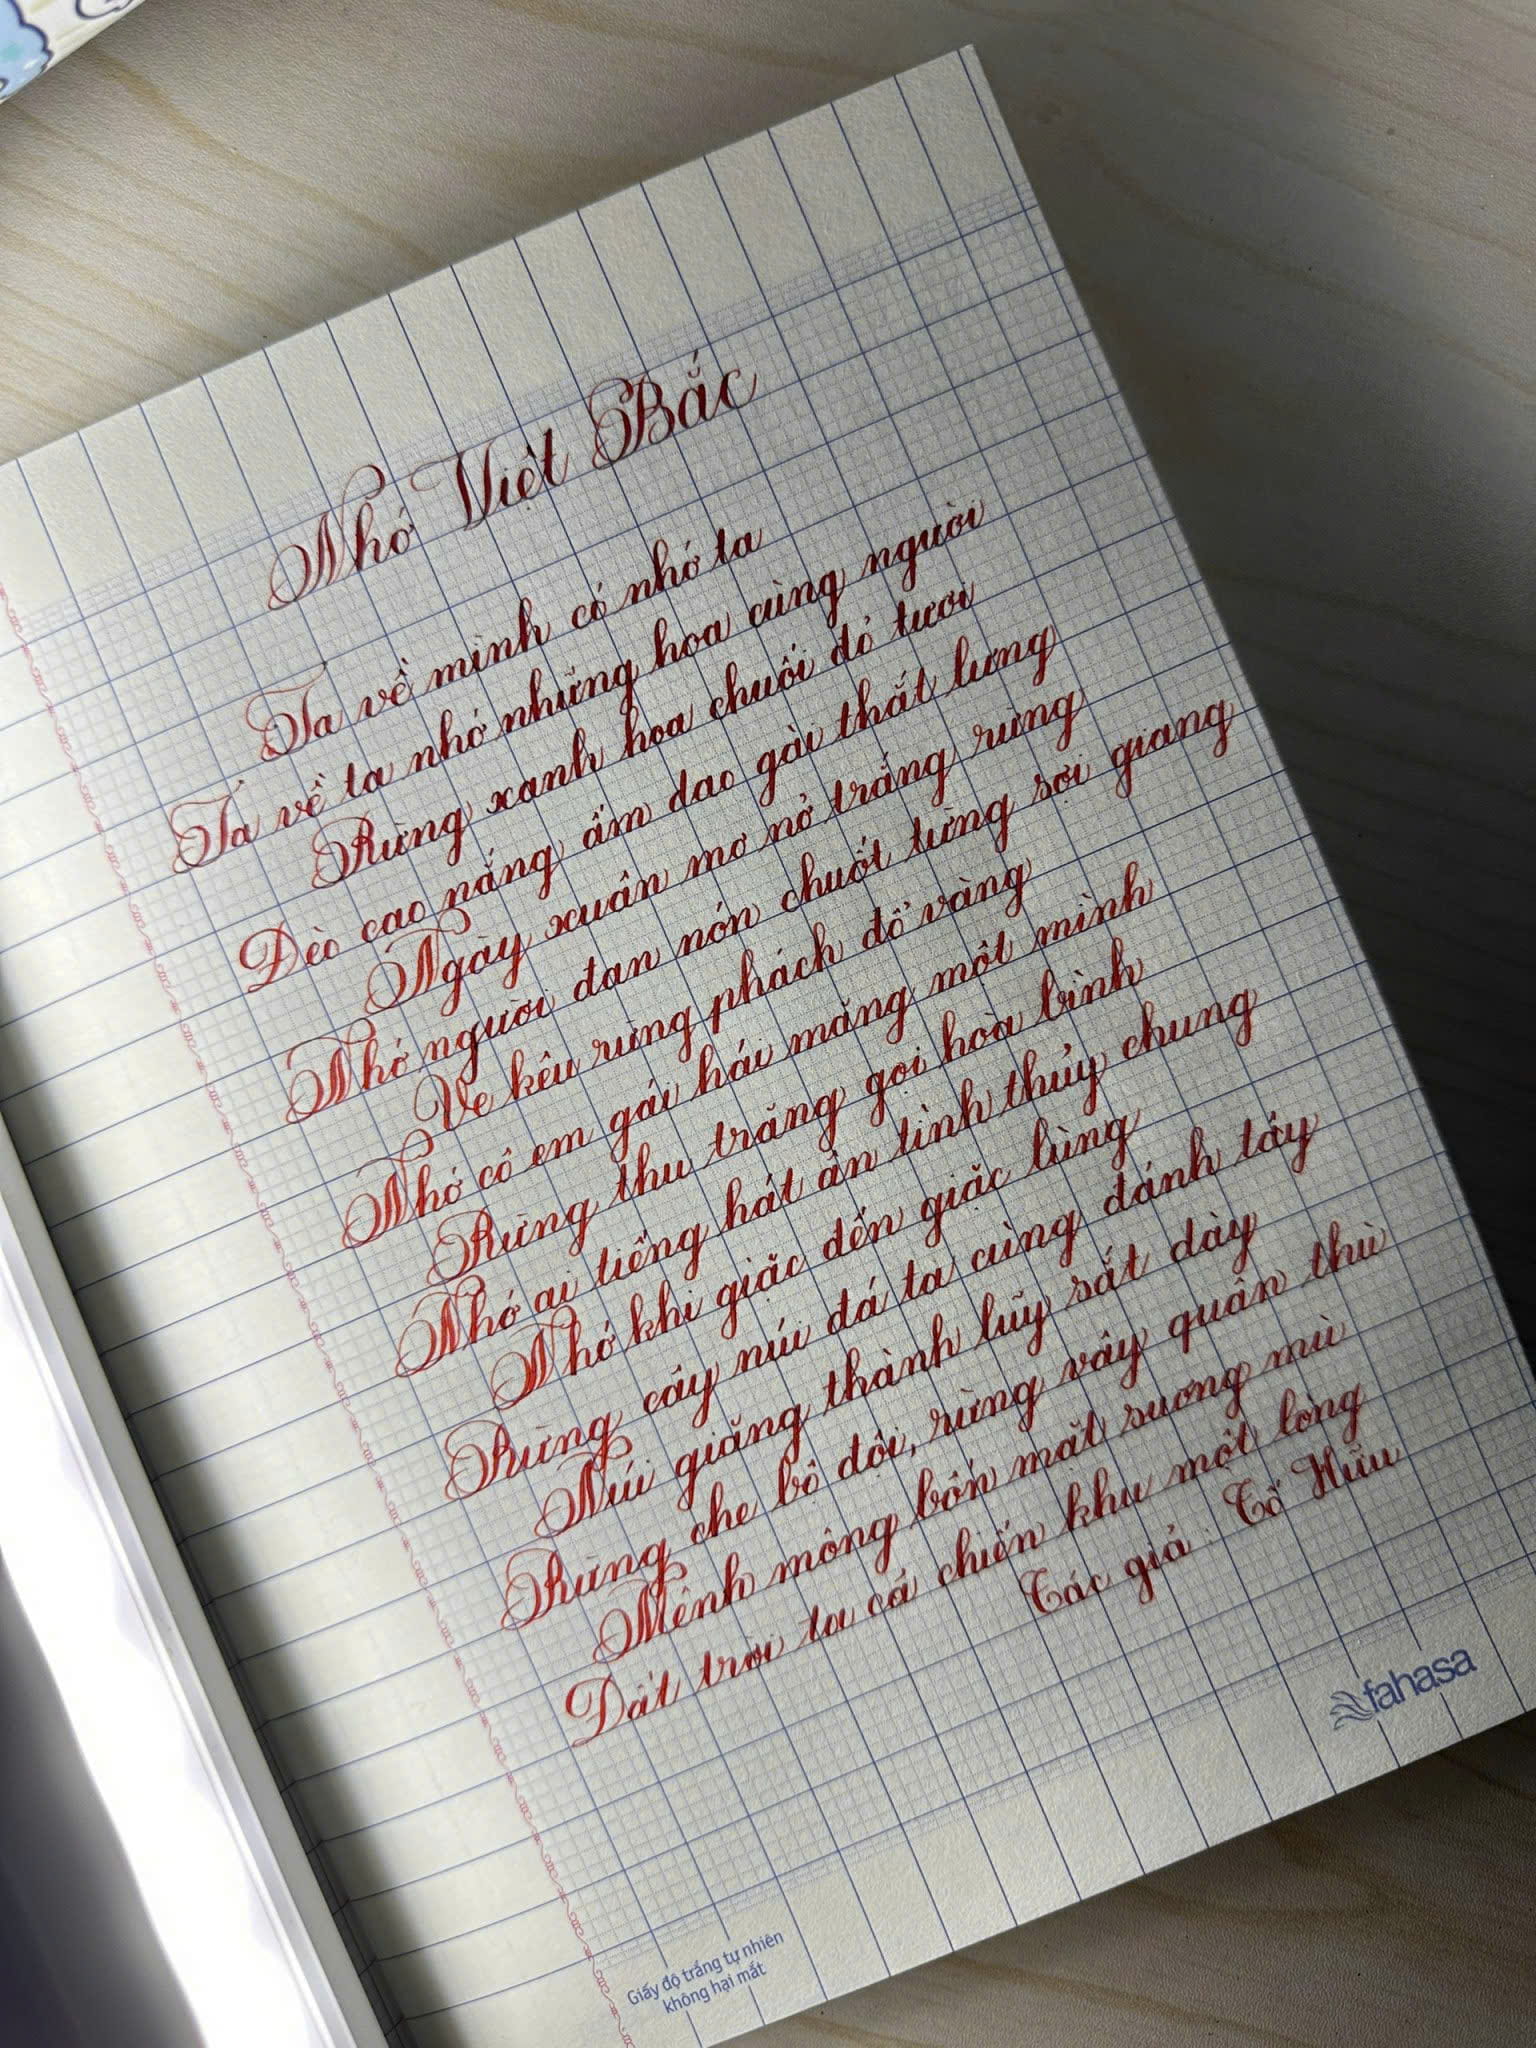 Nhớ Việt Bắc
Ta về mình có nhớ ta
Ta về ta nhớ những hoa cùng người
Rừng xanh hoa chuối đỏ tươi
Đèo cao nắng ấm dao gài thắt lưng
Ngày xuân mơ nở trắng rừng
Nhớ người đan nón chuốt từng sợi giang
Ve kêu rừng phách đổ vàng
Nhớ cô em gái hái măng một mình
Rừng thu trăng rọi hoà bình
Nhớ ai tiếng hát ân tình thủy chung
Nhớ khi giặc đến giặc lùng
Rừng cây núi đá ta cùng đánh tây
Núi giăng thành lũy sắt dày
Rừng che bộ đội, rừng vây quân thù
Mênh mông bốn mặt sương mù
Đất trời ta cả chiến khu một lòng
Tác giả: Tố Hữu
fahasa
Giấy độ trắng tự nhiên
không hại mắt